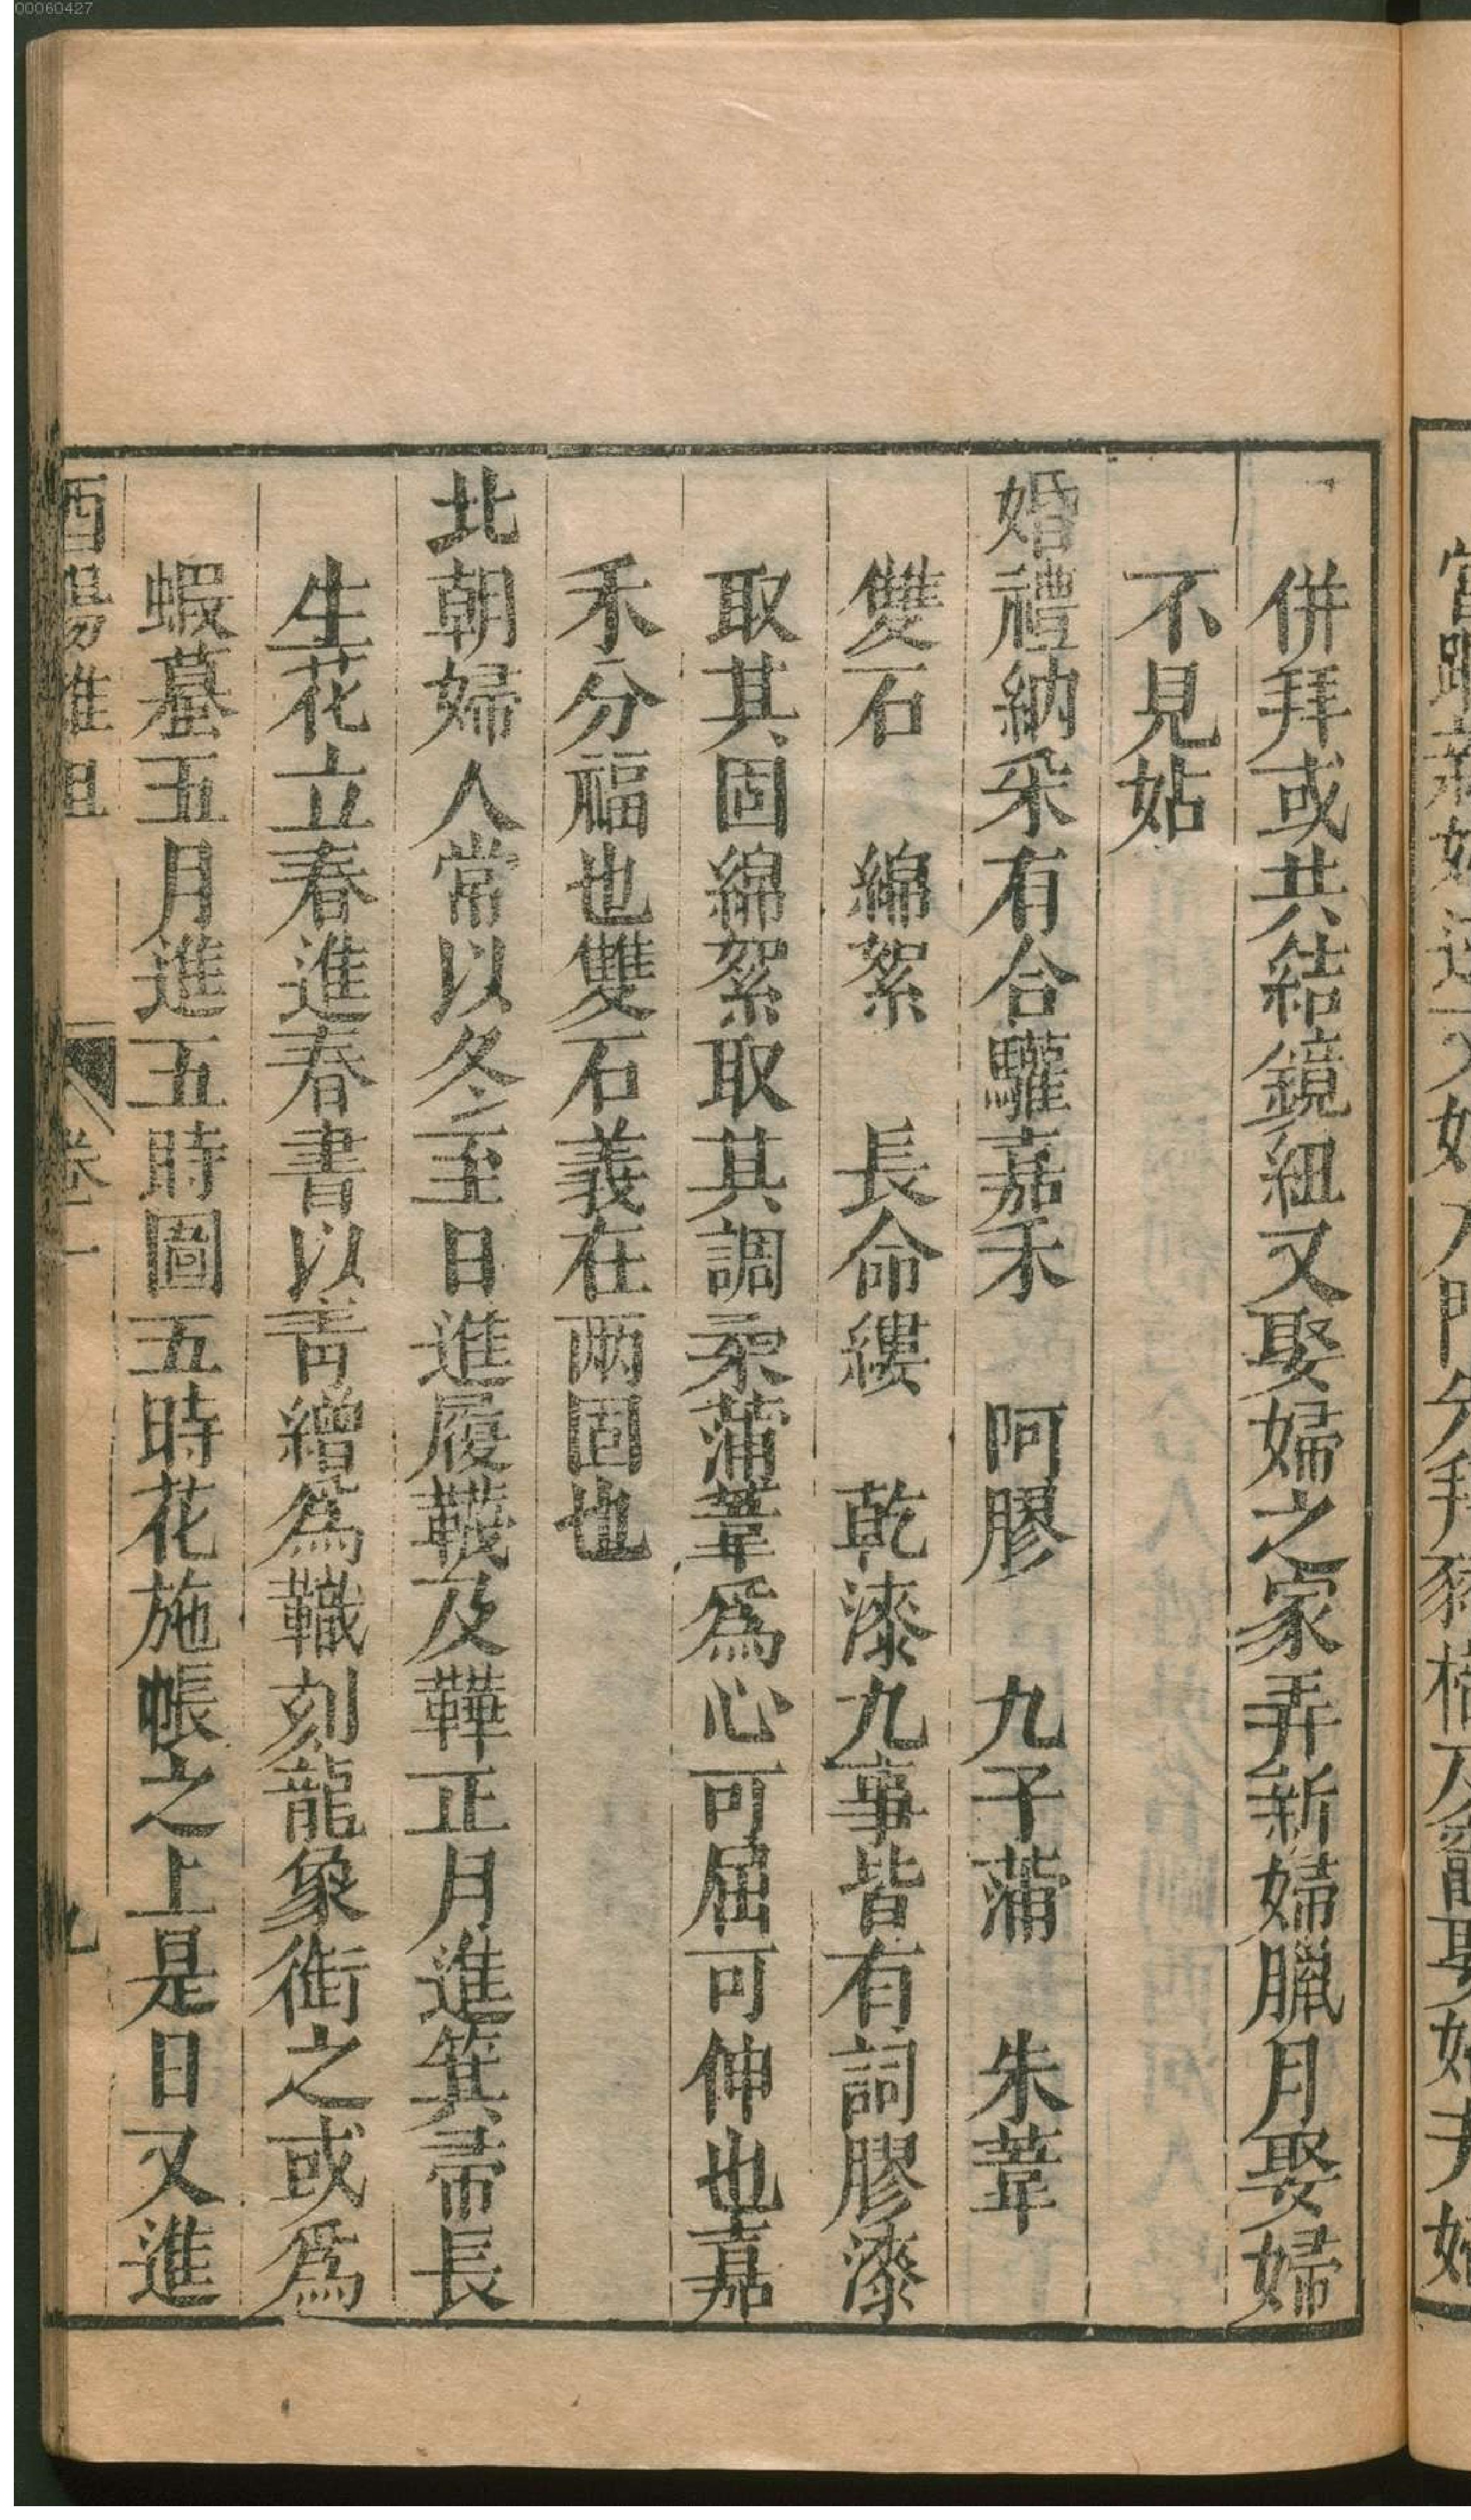 00060427
併拜或共結鏡紐又娶婦之家弄新婦臘月娶婦
不見姑
婚禮納采有合驩嘉禾　阿膠　九子蒲　朱葦
雙石　綿絮　長命縷　乾漆九事皆有詞膠漆
取其固綿絮取其調柔蒲葦為心可屈可伸也嘉
禾分福也雙石義在兩固也
北朝婦人常以冬至日進履韈及鞾正月進箕帚長
生花立春進春書以青繒為幟刻龍象銜之或為
蝦蟇五月進五時圖五時花施帳之上是日又進
酉陽雜俎　卷一　九